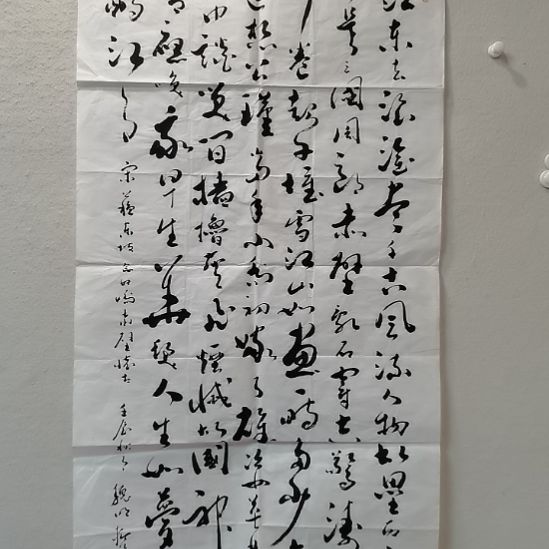 江东去浪淘尽千古风流人物故垒西
是三国周郎赤壁乱石穿空惊涛
卷起千堆雪江山如画一时多少
想公瑾当年小乔初嫁了雄姿英
巾谈笑间樯橹灰飞烟灭故国神
应笑我早生华发人生如梦
酹江月
宋苏东坡念奴娇赤壁怀古 壬辰